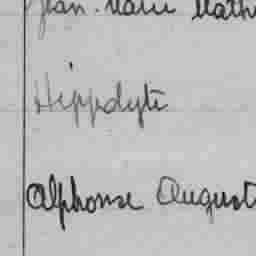 Jean-Marie Math
Hippolyte
Alphonse August